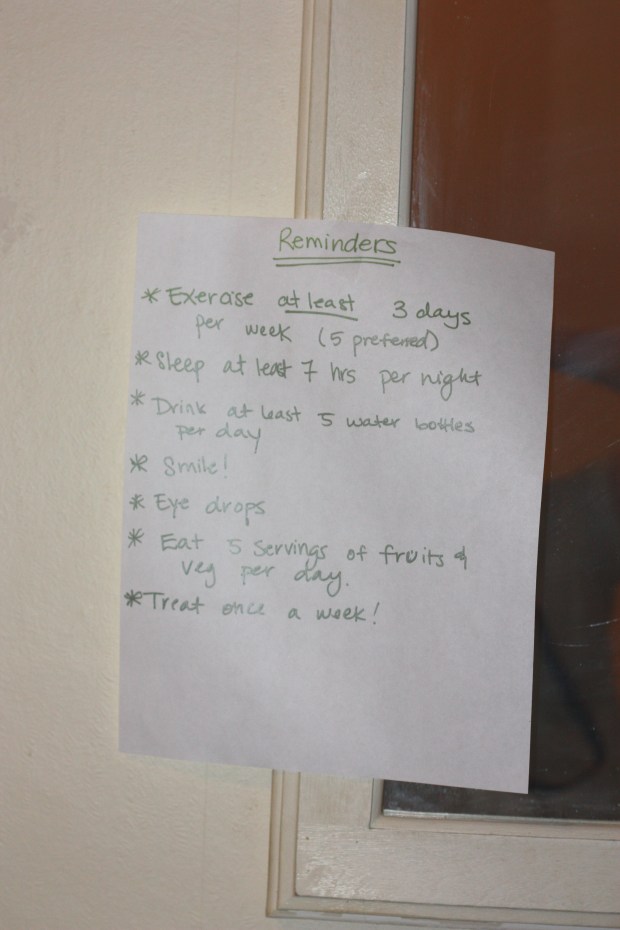 Reminders
* Exercise at least 3 days
per week (5 preferred)
* Sleep at least 7 hrs per night
* Drink at least 5 water bottles
per day
* Smile!
* Eye drops
* Eat 5 servings of fruits &
veg per day.
* Treat once a week!